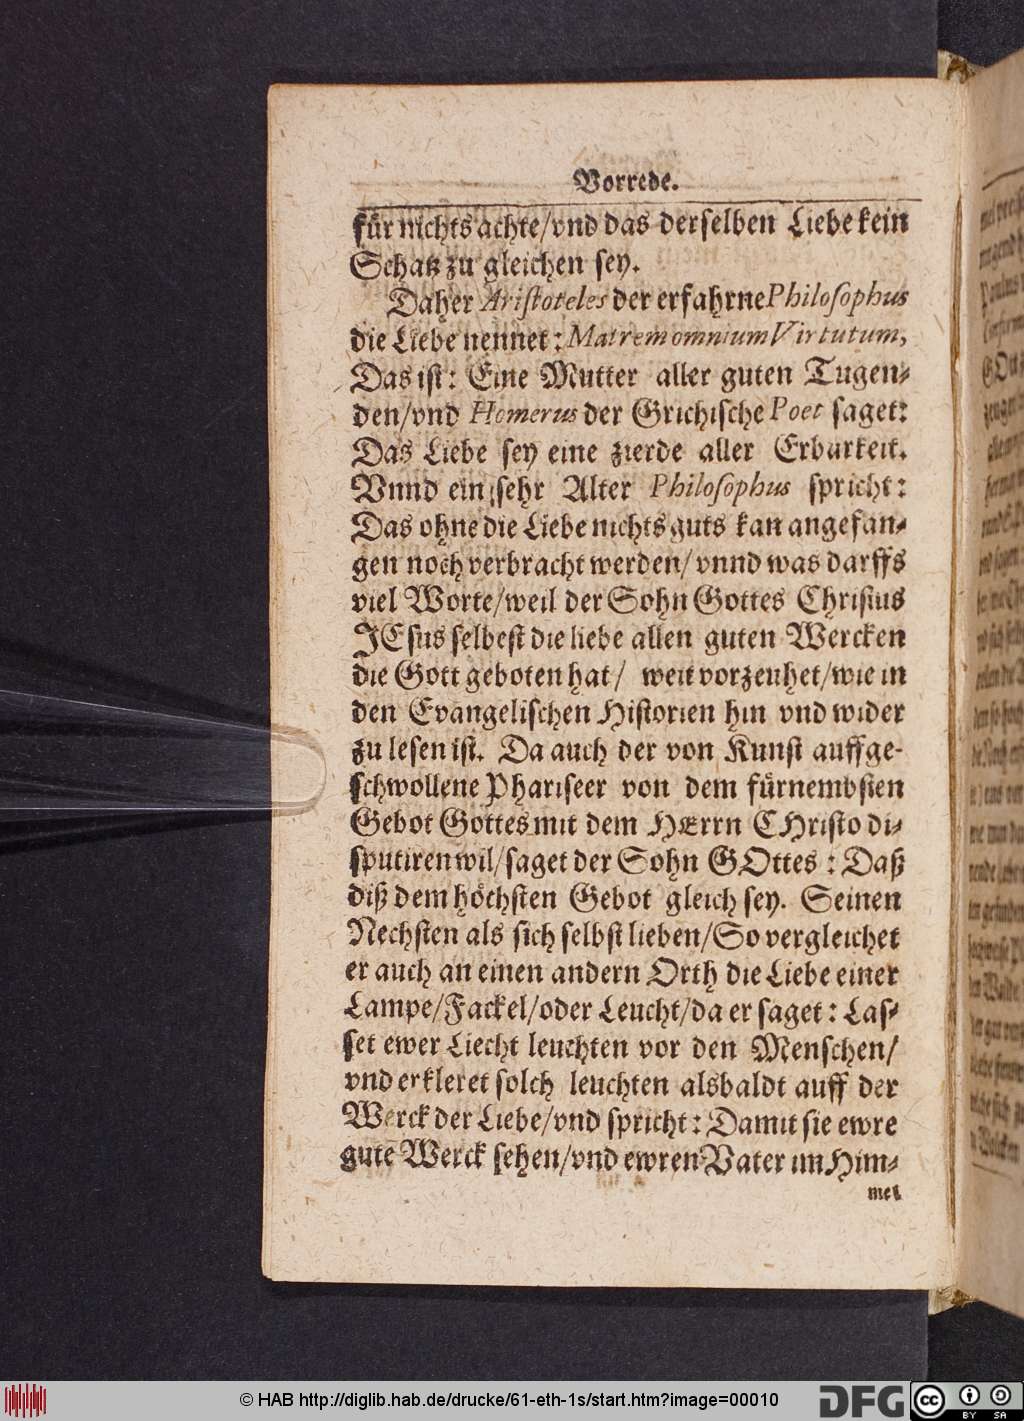 Vorrede.
für nichts achte/vnd das derselben Liebe kein
Schatz zu gleichen sey.
Daher Aristoteles der erfahrne Philosophus
die Liebe nennet: Matrem omnium Virtutum,
Das ist: Eine Mutter aller guten Tugen-
den/vnd Homerus der Grichische Poet saget:
Das Liebe sey eine zierde aller Erbarkeit.
Vnnd ein sehr Alter Philosophus spricht:
Das ohne die Liebe nichts guts kan angefan-
gen noch verbracht werden/vnnd was darffs
viel Worte/weil der Sohn Gottes Christus
JEsus selbest die liebe allen guten Wercken
die Gott geboten hat/ weit vorzeuhet/wie in
den Evangelischen Historien hin vnd wider
zu lesen ist. Da auch der von Kunst auffge-
schwollene Phariseer von dem fürnembsten
Gebot Gottes mit dem HErrn CHristo di-
sputiren wil/saget der Sohn GOttes: Daß
diß dem höchsten Gebot gleich sey. Seinen
Nechsten als sich selbst lieben/So vergleichet
er auch an einen andern Orth die Liebe einer
Lampe/Fackel/oder Leucht/da er saget: Las-
set ewer Liecht leuchten vor den Menschen/
vnd erkleret solch leuchten alsbaldt auff der
Werck der Liebe/vnd spricht: Damit sie ewre
gute Werck sehen/vnd ewren Vater im Him-
mel
© HAB http://diglib.hab.de/drucke/61-eth-1s/start.htm?image=00010
DFG
cc BY SA